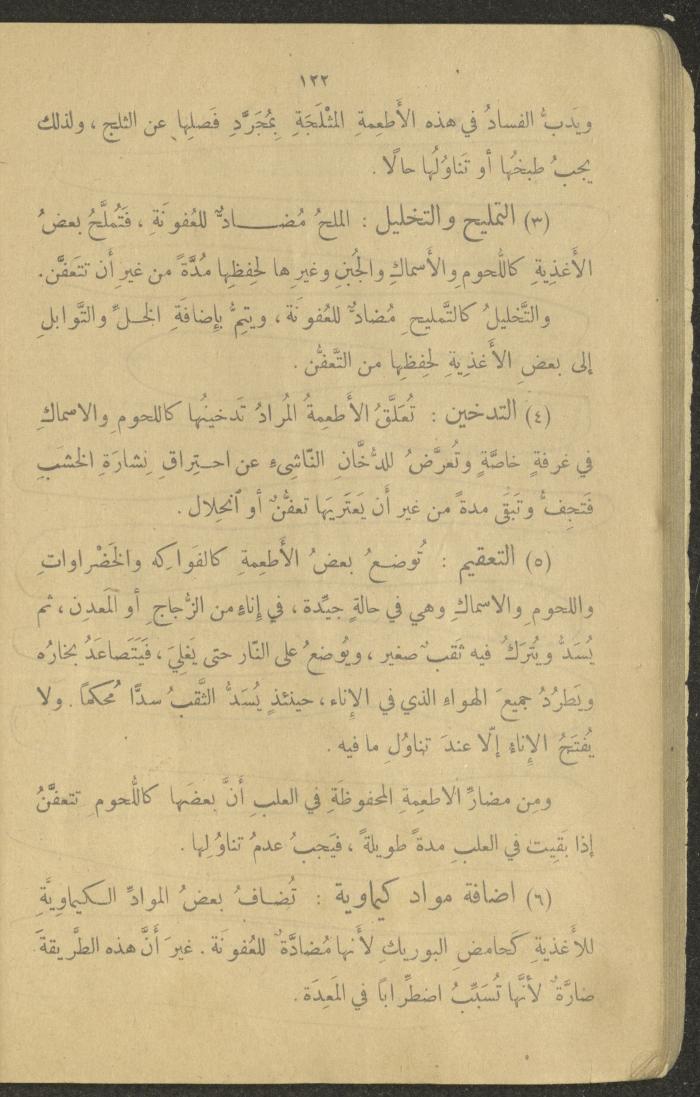 ١٢٢
ويَدبُّ الفسادُ في هذه الأَطعِمةِ المثْلَجَةِ بِمُجَرَّدِ فَصلِها عن الثلج ، ولذلك
يجبُ طبخُها أو تَناوُلُها حالًا .
(٣) التمليح والتخليل : الملحُ مُضادٌّ للعُفونَةِ ، فَتُملَّحُ بعضُ
الأغذِيةِ كاللُّحومِ والأَسماكِ والجُبنِ وغيرِها لحِفظِها مُدَّةً من غيرِ أَن تتعَفَّن .
والتَّخليلُ كالتَّمليحِ مُضادٌّ للعُفونَة ، ويتِمُّ بإِضافَةِ الخلِّ والتَّوابلِ
إلى بعضِ الأَغذِيةِ لحِفظِها من التَّعفُّن .
(٤) التدخين : تُعَلَّقُ الأَطعِمةُ المُرادُ تَدخينُها كاللحومِ والاسماكِ
في غرفةٍ خاصَّةٍ وتُعرَّضُ للدُّخَّانِ النّاشِىءِ عن احتِراقِ نِشارَةِ الخشَبِ
فَتَجِفُّ وتَبَقَى مدةً من غيرِ أَن يَعتَرِيَها تعفُّنٌ أو اُنحِلال .
(٥) التعقيم : تُوضعُ بعضُ الأَطعِمةِ كالفَواكِه والخَضْراواتِ
واللحومِ والاسماكِ وهي في حالةٍ جيِّدة ، في إِناءٍ من الزُّجاجِ أو المَعدِن ، ثم
يُسَدُّ ويُترَكُ فيه ثَقبٌ صغير ، ويُوضعُ على النّار حتى يَغلِيَ ، فَيَتَصاعَدُ بخارُه
ويَطرُدُ جميعَ الهواءِ الذي في الإِناء ، حينئذٍ يُسَدُّ الثَّقبُ سدًّا مُحكماً . ولا
يُفتَحُ الإِناءُ إلّا عندَ تناوُلِ ما فيه .
ومِن مضارِّ الاطعِمةِ المحفوظَةِ في العلبِ أَنَّ بعضَها كاللُّحومِ تتعفَّنُ
إذا بَقِيت في العلبِ مدةً طويلةً ، فَيَجبُ عدمُ تناوُلِها .
(٦) اضافة مواد كيماوية : تُضافُ بعضُ الموادِّ الكيماوِيَّةِ
للأَغذيةِ كَحامضِ البوريكِ لأَنها مُضادَّةٌ للعُفونَة . غيرَ أَنَّ هذه الطَّريقةَ
ضارَّةٌ لأَنَّها تُسَبِّبُ اضطِراباً في المَعِدَة .